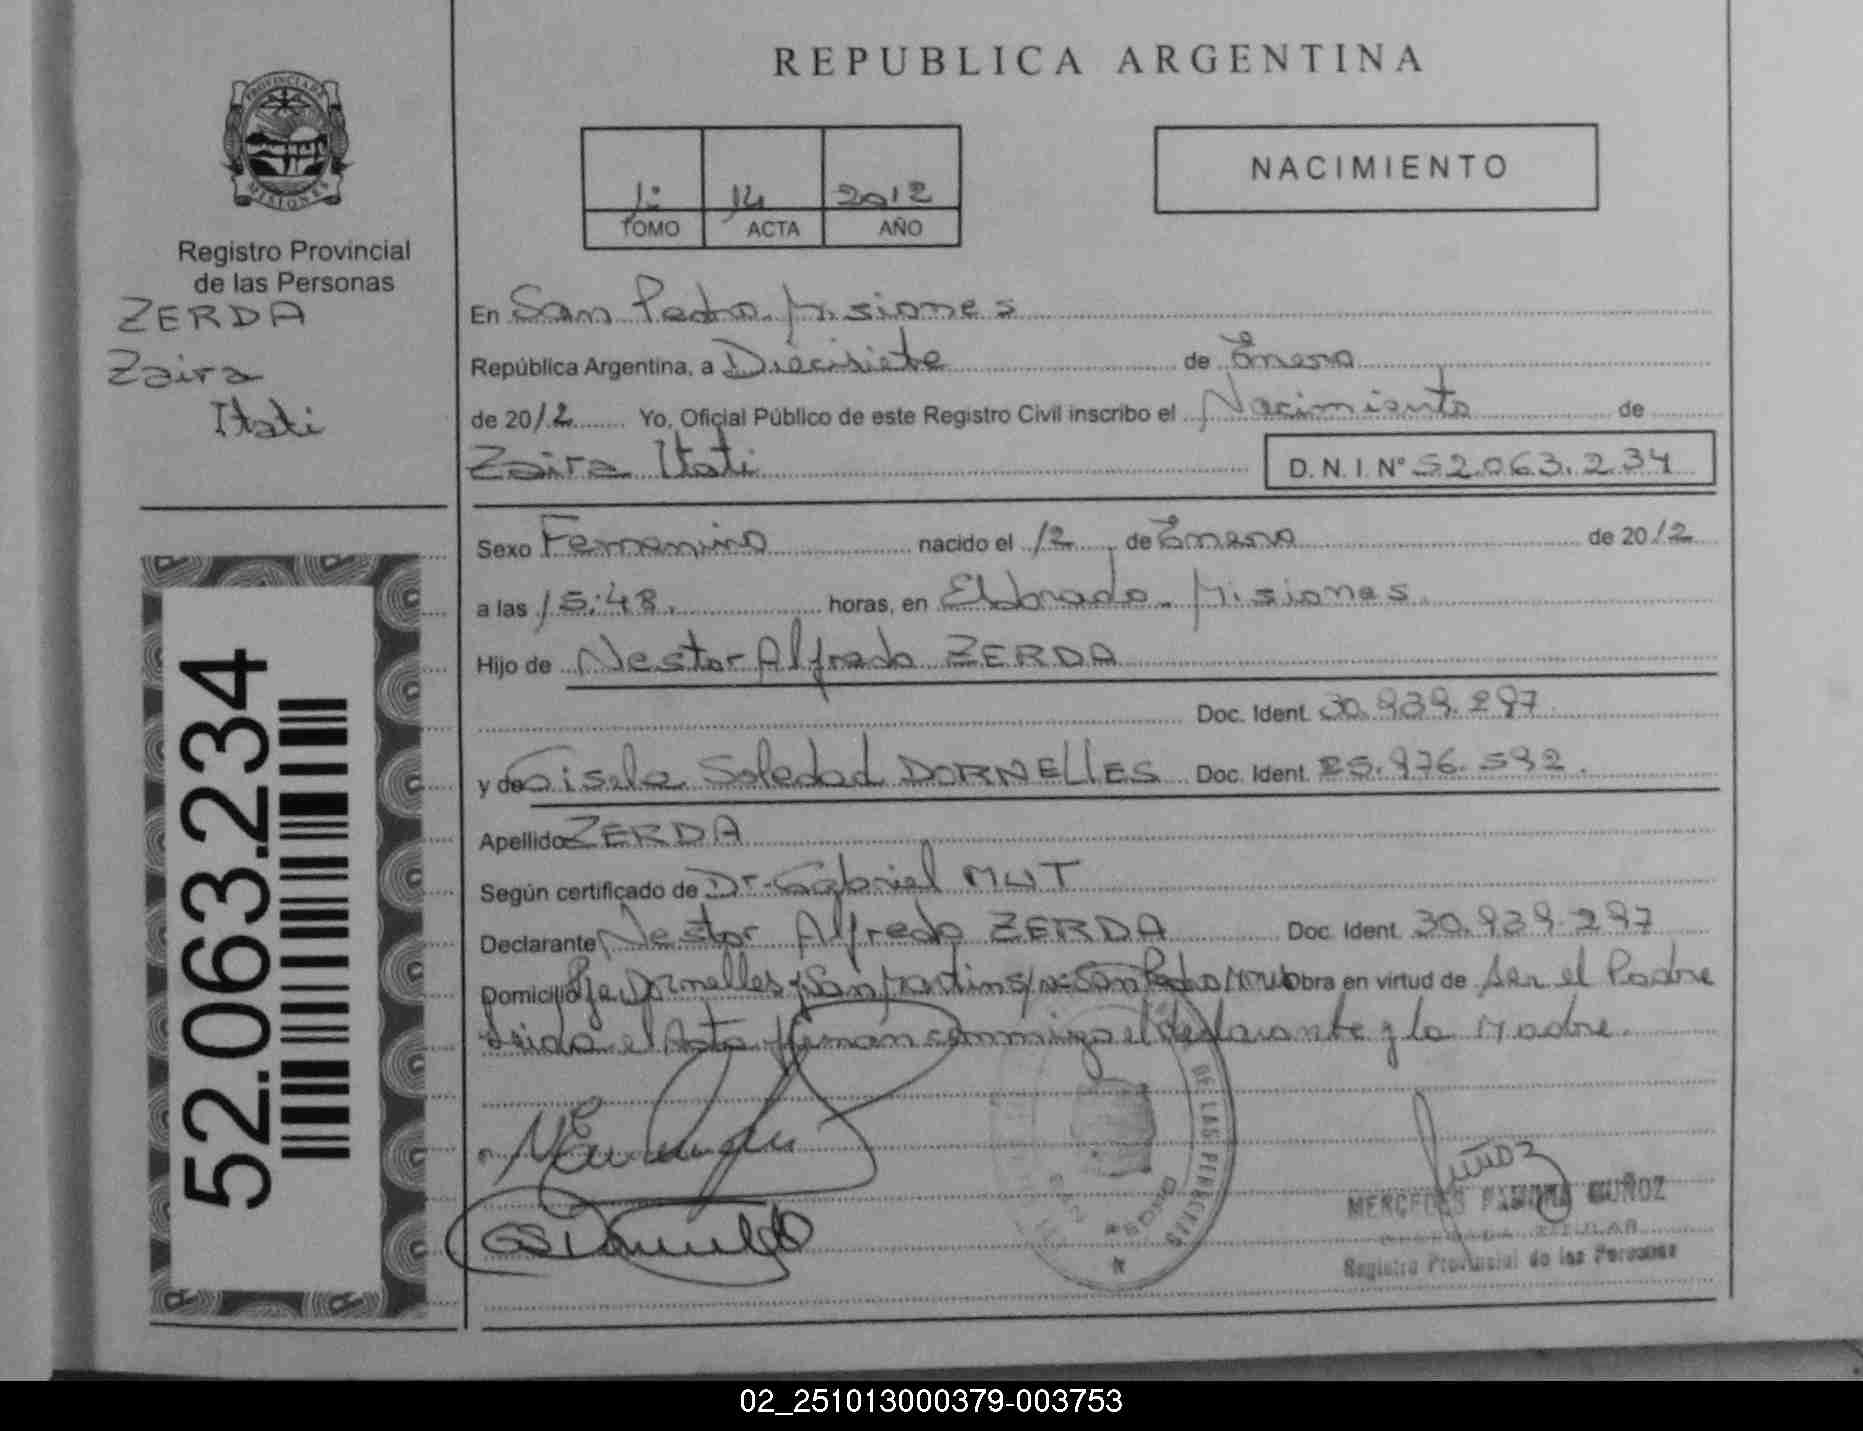 REPUBLICA ARGENTINA
PROVINCIA DE
MISIONES
Registro Provincial
de las Personas
ZERDA
Zaira
Itati
1:
14
2012
TOMO
ACTA
AÑO
NACIMIENTO
En San Pedro. Misiones
República Argentina, a Diecisiete de Enero
de 2012 Yo, Oficial Público de este Registro Civil inscribo el Nacimiento de
Zaira Itati D. N. I. N° 52.063.234
Sexo Femenino nacido el 12 de Enero de 2012
a las 15:48. horas, en Eldorado. Misiones.
Hijo de Nestor Alfredo ZERDA
Doc. Ident. 30.939.297.
y de Gisela Soledad DORNELLES Doc. Ident. 25.976.592.
Apellido ZERDA
Según certificado de Dr. Gabriel MUT
Declarante Nestor Alfredo ZERDA Doc. Ident. 30.939.297
Domicilio Dornelles y San Martin s/n: San Pedro Mnes Obra en virtud de ser el Padre
Leida el Acta firman conmigo el declarante y la Madre.
52.063.234
DE LAS PERSONAS
SAN PEDRO
Muñoz
MERCEDES MUÑOZ
TITULAR
Registro Provincial de las Personas
02_251013000379-003753